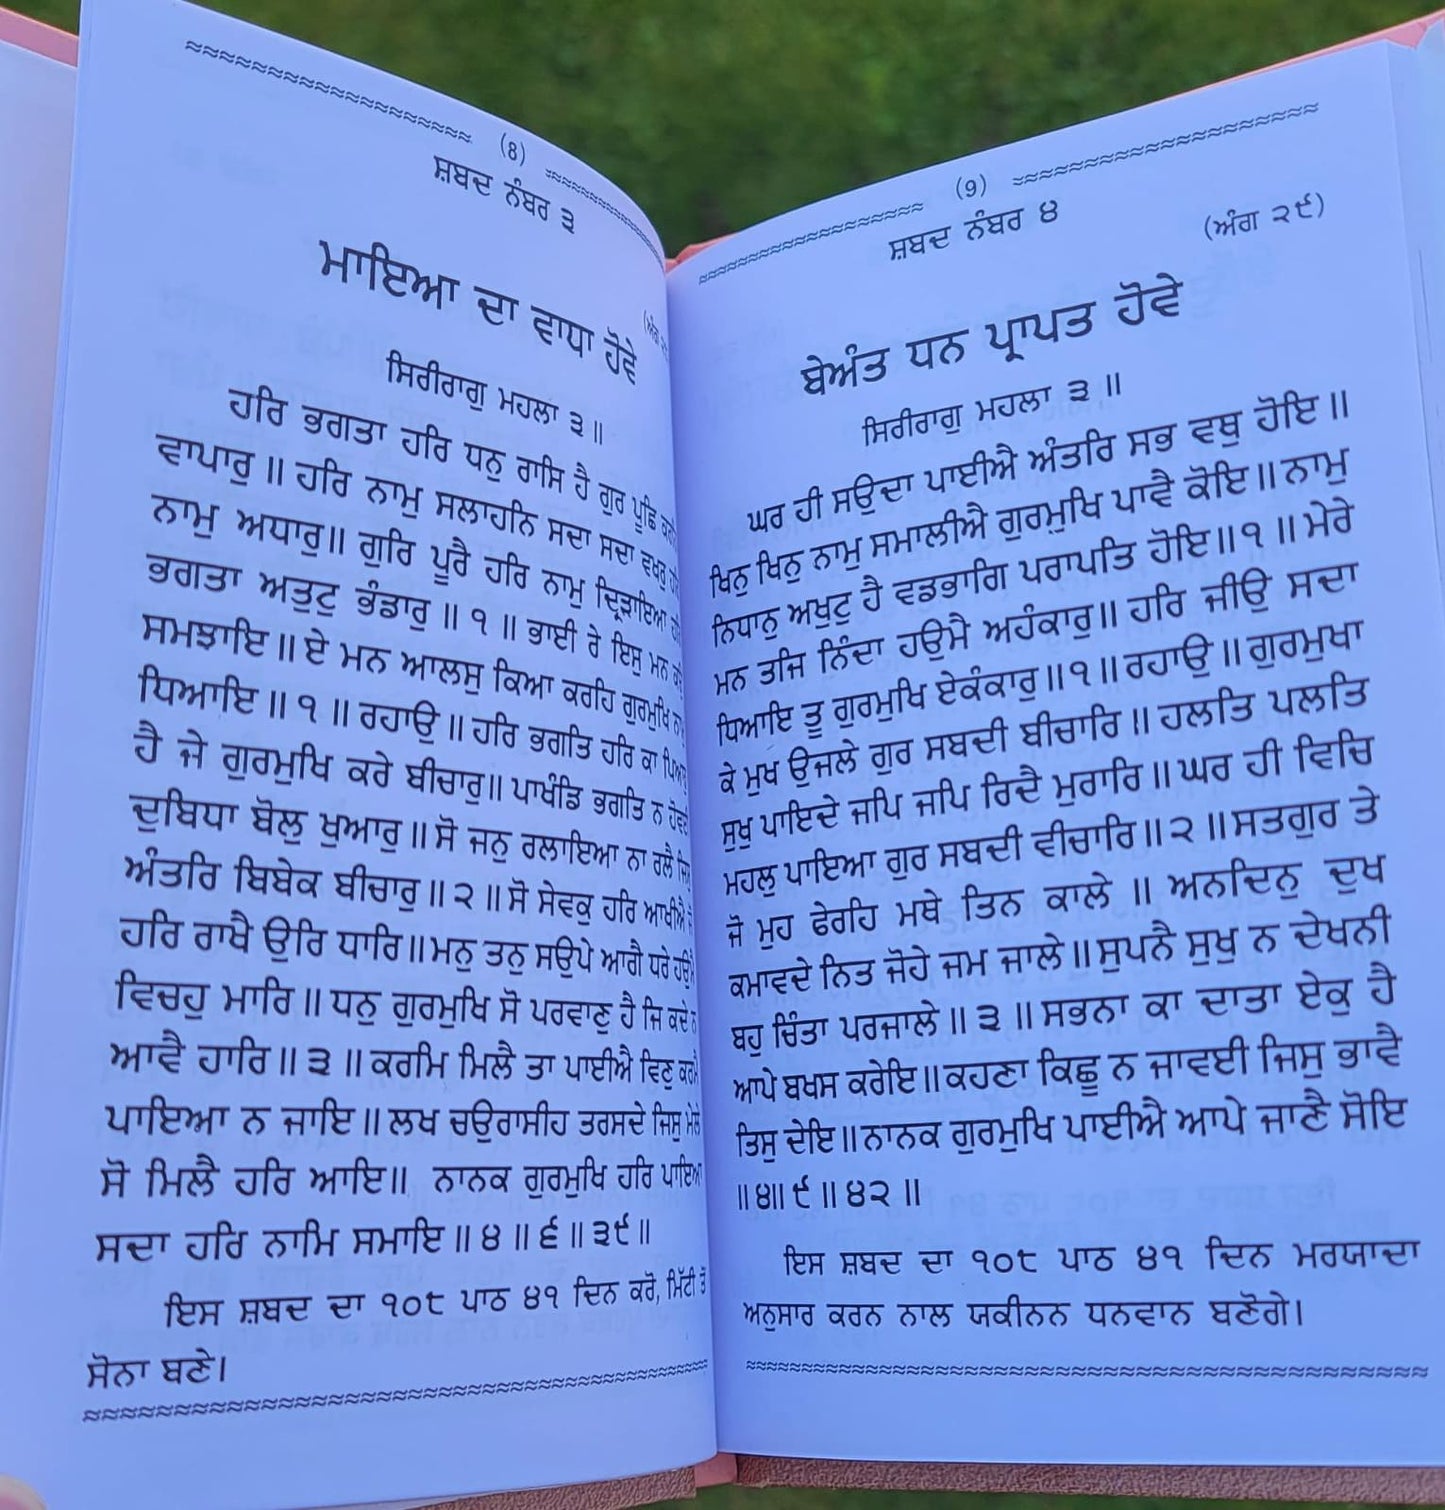 (8)
ਸ਼ਬਦ ਨੰਬਰ ੩
ਮਾਇਆ ਦਾ ਵਾਧਾ ਹੋਵੇ
ਸਿਰੀਰਾਗੁ ਮਹਲਾ ੩ ॥
ਹਰਿ ਭਗਤਾ ਹਰਿ ਧਨੁ ਰਾਸਿ ਹੈ ਗੁਰ ਪੂਛਿ
ਵਾਪਾਰੁ ॥ ਹਰਿ ਨਾਮੁ ਸਲਾਹਨਿ ਸਦਾ ਸਦਾ ਵਖਰੁ
ਨਾਮੁ ਅਧਾਰੁ॥ ਗੁਰਿ ਪੂਰੈ ਹਰਿ ਨਾਮੁ ਦ੍ਰਿੜਾਇਆ
ਭਗਤਾ ਅਤੁਟੁ ਭੰਡਾਰੁ ॥ ੧ ॥ ਭਾਈ ਰੇ ਇਸੁ ਮਨ
ਸਮਝਾਇ॥ ਏ ਮਨ ਆਲਸੁ ਕਿਆ ਕਰਹਿ ਗੁਰਮੁਖਿ
ਧਿਆਇ ॥ ੧ ॥ ਰਹਾਉ ॥ ਹਰਿ ਭਗਤਿ ਹਰਿ ਕਾ ਪਿਆਰੁ
ਹੈ ਜੇ ਗੁਰਮੁਖਿ ਕਰੇ ਬੀਚਾਰੁ॥ ਪਾਖੰਡਿ ਭਗਤਿ ਨ ਹੋਵਈ
ਦੁਬਿਧਾ ਬੋਲੁ ਖੁਆਰੁ॥ ਸੋ ਜਨੁ ਰਲਾਇਆ ਨਾ ਰਲੈ ਜਿਸੁ
ਅੰਤਰਿ ਬਿਬੇਕ ਬੀਚਾਰੁ॥ ੨ ॥ ਸੋ ਸੇਵਕੁ ਹਰਿ ਆਖੀਐ ਜੋ
ਹਰਿ ਰਾਖੈ ਉਰਿ ਧਾਰਿ॥ਮਨੁ ਤਨੁ ਸਉਪੇ ਆਗੈ ਧਰੇ ਹਉਮੈ
ਵਿਚਹੁ ਮਾਰਿ॥ ਧਨੁ ਗੁਰਮੁਖਿ ਸੋ ਪਰਵਾਣੁ ਹੈ ਜਿ ਕਦੇ ਨ
ਆਵੈ ਹਾਰਿ॥ ੩ ॥ ਕਰਮਿ ਮਿਲੈ ਤਾ ਪਾਈਐ ਵਿਣੁ ਕਰਮੈ
ਪਾਇਆ ਨ ਜਾਇ॥ ਲਖ ਚਉਰਾਸੀਹ ਤਰਸਦੇ ਜਿਸੁ ਮੇਲੇ
ਸੋ ਮਿਲੈ ਹਰਿ ਆਇ॥ ਨਾਨਕ ਗੁਰਮੁਖਿ ਹਰਿ ਪਾਇਆ
ਸਦਾ ਹਰਿ ਨਾਮਿ ਸਮਾਇ॥ ੪ ॥ ੬ ॥ ੩੯॥
ਇਸ ਸ਼ਬਦ ਦਾ ੧੦੮ ਪਾਠ ੪੧ ਦਿਨ ਕਰੋ, ਮਿੱਟੀ ਤੋਂ
ਸੋਨਾ ਬਣੇ।
(9)
ਸ਼ਬਦ ਨੰਬਰ ੪
(ਅੰਗ ੨੯)
ਬੇਅੰਤ ਧਨ ਪ੍ਰਾਪਤ ਹੋਵੇ
ਸਿਰੀਰਾਗੁ ਮਹਲਾ ੩ ॥
ਘਰ ਹੀ ਸਉਦਾ ਪਾਈਐ ਅੰਤਰਿ ਸਭ ਵਥੁ ਹੋਇ॥
ਖਿਨੁ ਖਿਨੁ ਨਾਮੁ ਸਮਾਲੀਐ ਗੁਰਮੁਖਿ ਪਾਵੈ ਕੋਇ॥ ਨਾਮੁ
ਨਿਧਾਨੁ ਅਖੁਟੁ ਹੈ ਵਡਭਾਗਿ ਪਰਾਪਤਿ ਹੋਇ॥੧॥ ਮੇਰੇ
ਮਨ ਤਜਿ ਨਿੰਦਾ ਹਉਮੈ ਅਹੰਕਾਰੁ॥ ਹਰਿ ਜੀਉ ਸਦਾ
ਧਿਆਇ ਤੂ ਗੁਰਮੁਖਿ ਏਕੰਕਾਰੁ॥੧॥ ਰਹਾਉ ॥ਗੁਰਮੁਖਾ
ਕੇ ਮੁਖ ਉਜਲੇ ਗੁਰ ਸਬਦੀ ਬੀਚਾਰਿ॥ ਹਲਤਿ ਪਲਤਿ
ਸੁਖੁ ਪਾਇਦੇ ਜਪਿ ਜਪਿ ਰਿਦੈ ਮੁਰਾਰਿ॥ ਘਰ ਹੀ ਵਿਚਿ
ਮਹਲੁ ਪਾਇਆ ਗੁਰ ਸਬਦੀ ਵੀਚਾਰਿ॥ ੨ ॥ਸਤਗੁਰ ਤੇ
ਜੋ ਮੁਹ ਫੇਰਹਿ ਮਥੇ ਤਿਨ ਕਾਲੇ ॥ ਅਨਦਿਨੁ ਦੁਖ
ਕਮਾਵਦੇ ਨਿਤ ਜੋਹੇ ਜਮ ਜਾਲੇ॥ਸੁਪਨੈ ਸੁਖੁ ਨ ਦੇਖਨੀ
ਬਹੁ ਚਿੰਤਾ ਪਰਜਾਲੇ॥ ੩ ॥ਸਭਨਾ ਕਾ ਦਾਤਾ ਏਕੁ ਹੈ
ਆਪੇ ਬਖਸ ਕਰੇਇ॥ਕਹਣਾ ਕਿਛੂ ਨ ਜਾਵਈ ਜਿਸੁ ਭਾਵੈ
ਤਿਸੁ ਦੇਇ॥ਨਾਨਕ ਗੁਰਮੁਖਿ ਪਾਈਐ ਆਪੇ ਜਾਣੈ ਸੋਇ
॥੪॥੯॥੪੨॥
ਇਸ ਸ਼ਬਦ ਦਾ ੧੦੮ ਪਾਠ ੪੧ ਦਿਨ ਮਰਯਾਦਾ
ਅਨੁਸਾਰ ਕਰਨ ਨਾਲ ਯਕੀਨਨ ਧਨਵਾਨ ਬਣੋਗੇ।